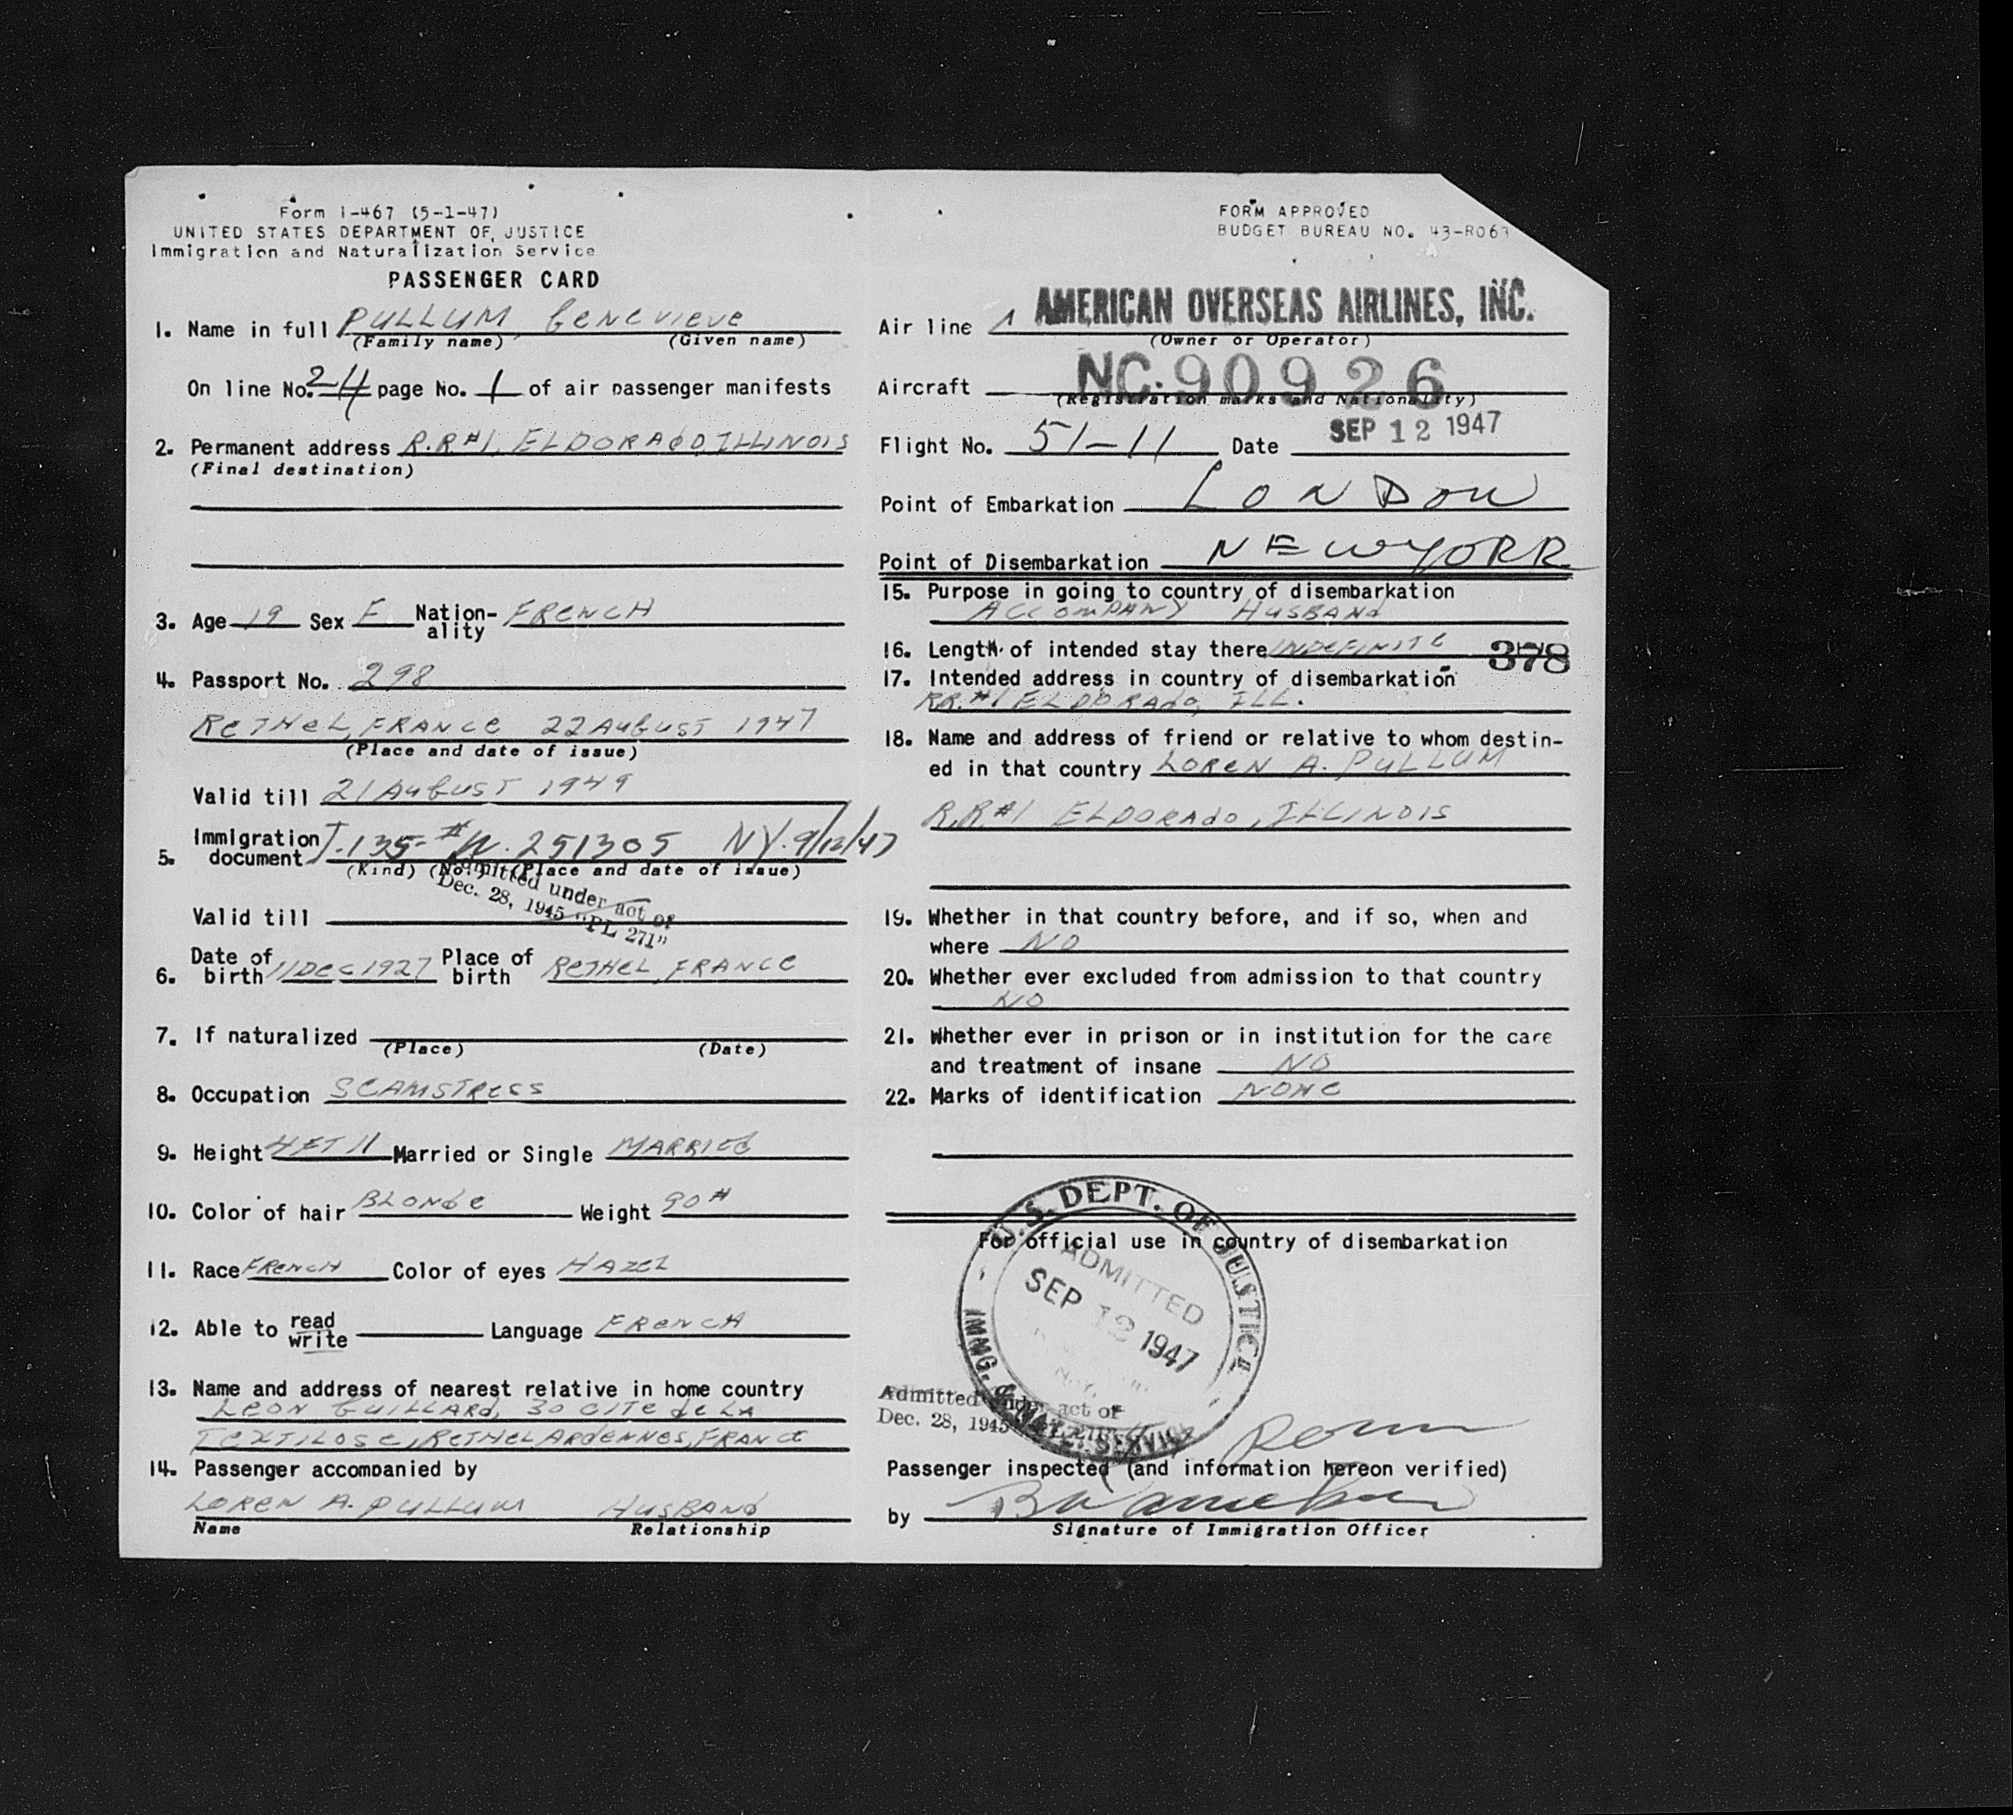 Form I-467 (5-1-47)
UNITED STATES DEPARTMENT OF JUSTICE
Immigration and Naturalization Service
PASSENGER CARD
1. Name in full PULLUM, Genevieve
(Family name) (Given name)
On line No. 24 page No. 1 of air passenger manifests
2. Permanent address R.R.#1, ELDORAdO, ILLINOIS
(Final destination)
3. Age 19 Sex F Nation-ality FRENCH
4. Passport No. 298
ReTHeL, FRANCE 22 AUGUST 1947
(Place and date of issue)
Valid till 21 AUGUST 1949
5. Immigration document I-135-# 251305 NY. 9/12/47
(Kind) (No.) (Place and date of issue)
Admitted under act of
Dec. 28, 1945 "PL 271"
Valid till
6. Date of birth 11 Dec 1927 Place of birth ReTHeL, FRANCE
7. If naturalized
(Place) (Date)
8. Occupation SEAMSTRESS
9. Height 4 FT 11 Married or Single MARRIEd
10. Color of hair BLONde Weight 90#
11. Race FRENCH Color of eyes HAZEL
12. Able to read write Language FRENCH
13. Name and address of nearest relative in home country
LEON GUILLARd, 30 CITE de LA
TEXTILOSE, RETHEL ARdENNES, FRANCE
14. Passenger accompanied by
LOREN A. PULLUM HUSBANd
Name Relationship
FORM APPROVED
BUDGET BUREAU NO. 43-R063
Air line AMERICAN OVERSEAS AIRLINES, INC.
(Owner or Operator)
Aircraft NC.90926
(Registration marks and Nationality)
Flight No. 51-11 Date SEP 12 1947
Point of Embarkation LONDON
Point of Disembarkation NEW YORK
15. Purpose in going to country of disembarkation
ACCOMPANY HUSBANd
16. Length of intended stay there INDEFINITE 378
17. Intended address in country of disembarkation
RR.#1 ELDORAdo, ILL.
18. Name and address of friend or relative to whom destin-
ed in that country LOREN A. PULLUM
R.R.#1 ELDORAdO, ILLINOIS
19. Whether in that country before, and if so, when and
where NO
20. Whether ever excluded from admission to that country
NO
21. Whether ever in prison or in institution for the care
and treatment of insane NO
22. Marks of identification NONE
For official use in country of disembarkation
U.S. DEPT. OF JUSTICE
ADMITTED
SEP 12 1947
IMMG. & NATZ. SERVICE
Admitted under act of
Dec. 28, 1945
Passenger inspected (and information hereon verified)
by
Signature of Immigration Officer